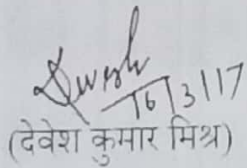 16/3/17
(देवेश कुमार मिश्र)